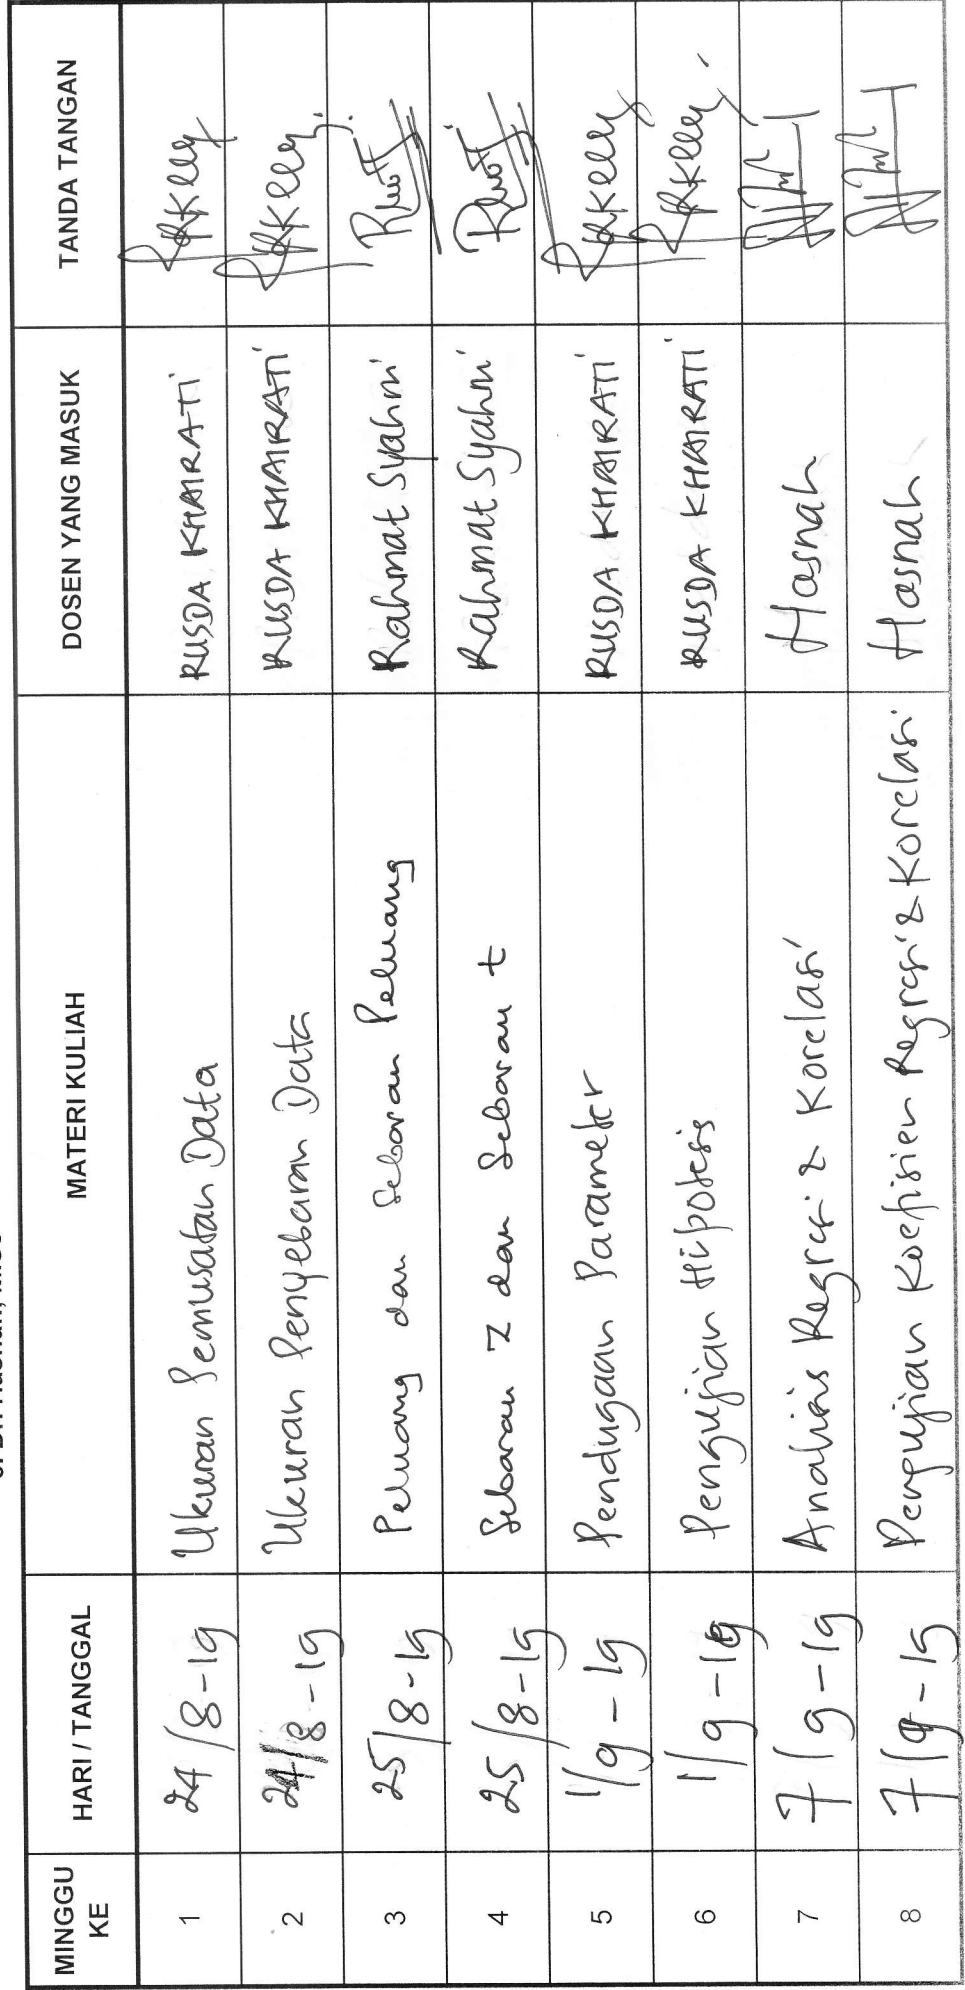 MINGGU KE HARI / TANGGAL MATERI KULIAH DOSEN YANG MASUK TANDA TANGAN
1 24/8-19 Ukuran Pemusatan Data RUSDA KHAIRATI
2 24/8-19 Ukuran Penyebaran Data RUSDA KHAIRATI
3 25/8-19 Peluang dan Sebaran Peluang Rahmat Syahni
4 25/8-19 Sebaran Z dan Sebaran t Rahmat Syahni
5 1/9-19 Pendugaan Parameter RUSDA KHAIRATI
6 1/9-19 Pengujian Hipotesis RUSDA KHAIRATI
7 7/9-19 Analisis Regresi & Korelasi Hasnah
8 7/9-19 Pengujian Koefisien Regresi & Korelasi Hasnah